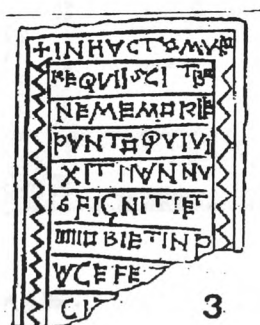 +INHVCTOMVLO
REQVIISCITBO
NEMEMORIE
PVNTOQVIVI
XITINANNV
SFICNITIET
IIIIIOBIETINP
CEFE
CI
3